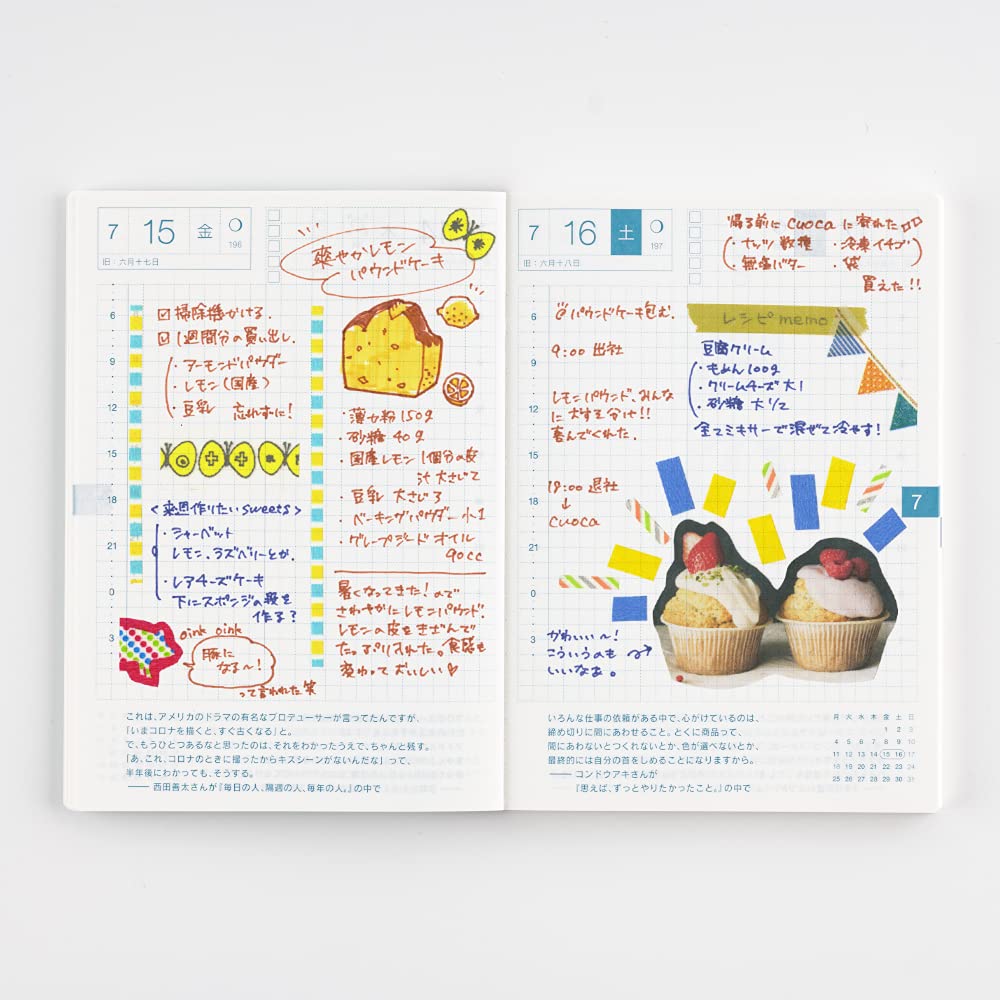 7 15 金
196
旧：六月十七日
爽やかレモン
パウンドケーキ
6
9
12
15
18
21
0
3
☑ 掃除機かける.
☑ 1週間分の買い出し.
・アーモンドパウダー
・レモン(国産)
・豆乳 忘れずに!
<来週作りたいsweets>
・シャーベット
レモン、ラズベリーとか.
・レアチーズケーキ
下にスポンジの段を
作る?
oink oink
豚に
なる〜!
って言われた笑
・薄力粉 150g
・砂糖 40g
・国産レモン 1個分の皮
汁 大さじ2
・豆乳 大さじ3
・ベーキングパウダー 小1
・グレープシードオイル
90cc
暑くなってきた!ので
さわやかにレモンパウンド.
レモンの皮をきざんで
たっぷり入れた。食感も
変わっておいしい♡
これは、アメリカのドラマの有名なプロデューサーが言ってたんですが、
「いまコロナを描くと、すぐ古くなる」と。
で、もうひとつあるなと思ったのは、それをわかったうえで、ちゃんと残す。
「あ、これ、コロナのときに撮ったからキスシーンがないんだな」って、
半年後にわかっても、そうする。
—— 西田善太さんが『毎日の人、隔週の人、毎年の人。』の中で
7 16 土
197
旧：六月十八日
帰る前に cuoca に寄れた
・ナッツ数種 ・冷凍イチゴ
・無塩バター ・袋
買えた!!
6
9
12
15
18
21
0
3
パウンドケーキ包む.
9:00 出社
レモンパウンド、みんな
に大すき分け!!
喜んでくれた.
18:00 退社
↓
cuoca
レシピ memo
豆腐クリーム
・もめん 100g
・クリームチーズ 大1
・砂糖 大1/2
全てミキサーで混ぜて冷やす!
7
かわいい〜!
こういうのも
いいなぁ。
いろんな仕事の依頼がある中で、心がけているのは、
締め切りに間にあわせること。とくに商品って、
間にあわないとつくれないとか、色が選べないとか、
最終的には自分の首をしめることになりますから。
—— コンドウアキさんが
『思えば、ずっとやりたかったこと。』の中で
月 火 水 木 金 土 日
1 2 3
4 5 6 7 8 9 10
11 12 13 14 15 16 17
18 19 20 21 22 23 24
25 26 27 28 29 30 31